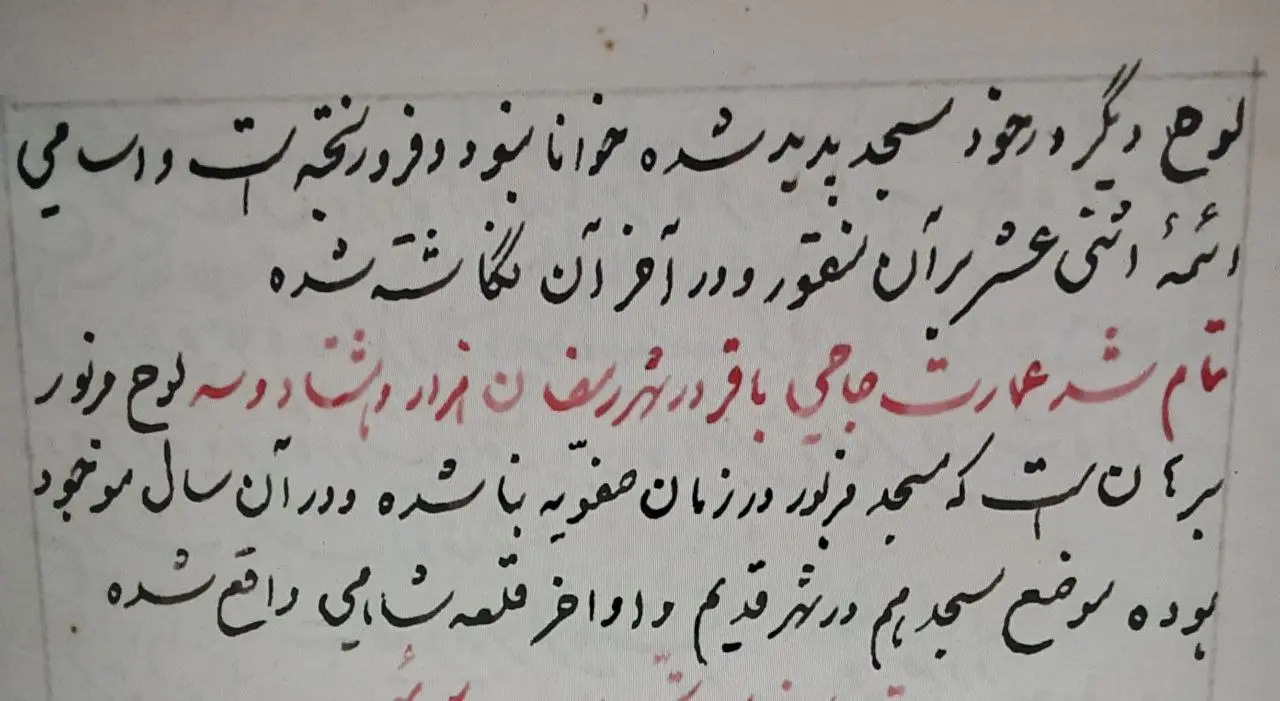 لوح دیگر در خود مسجد پدید شده خوانا نبود و فرو ریخته است و اسامی
ائمهٔ اثنی عشر بر آن نقور و در آخر آن نگاشته شده
تمام شد عمارت حاجی باقر در شهر رمضان هزار و هشتاد و سه لوح مزبور
برهان است که مسجد مزبور در زمان صفویّه بنا شده و در آن سال موجود
بوده موضع مسجد هم در شهر قدیم و اواخر قلعه شاهی واقع شده